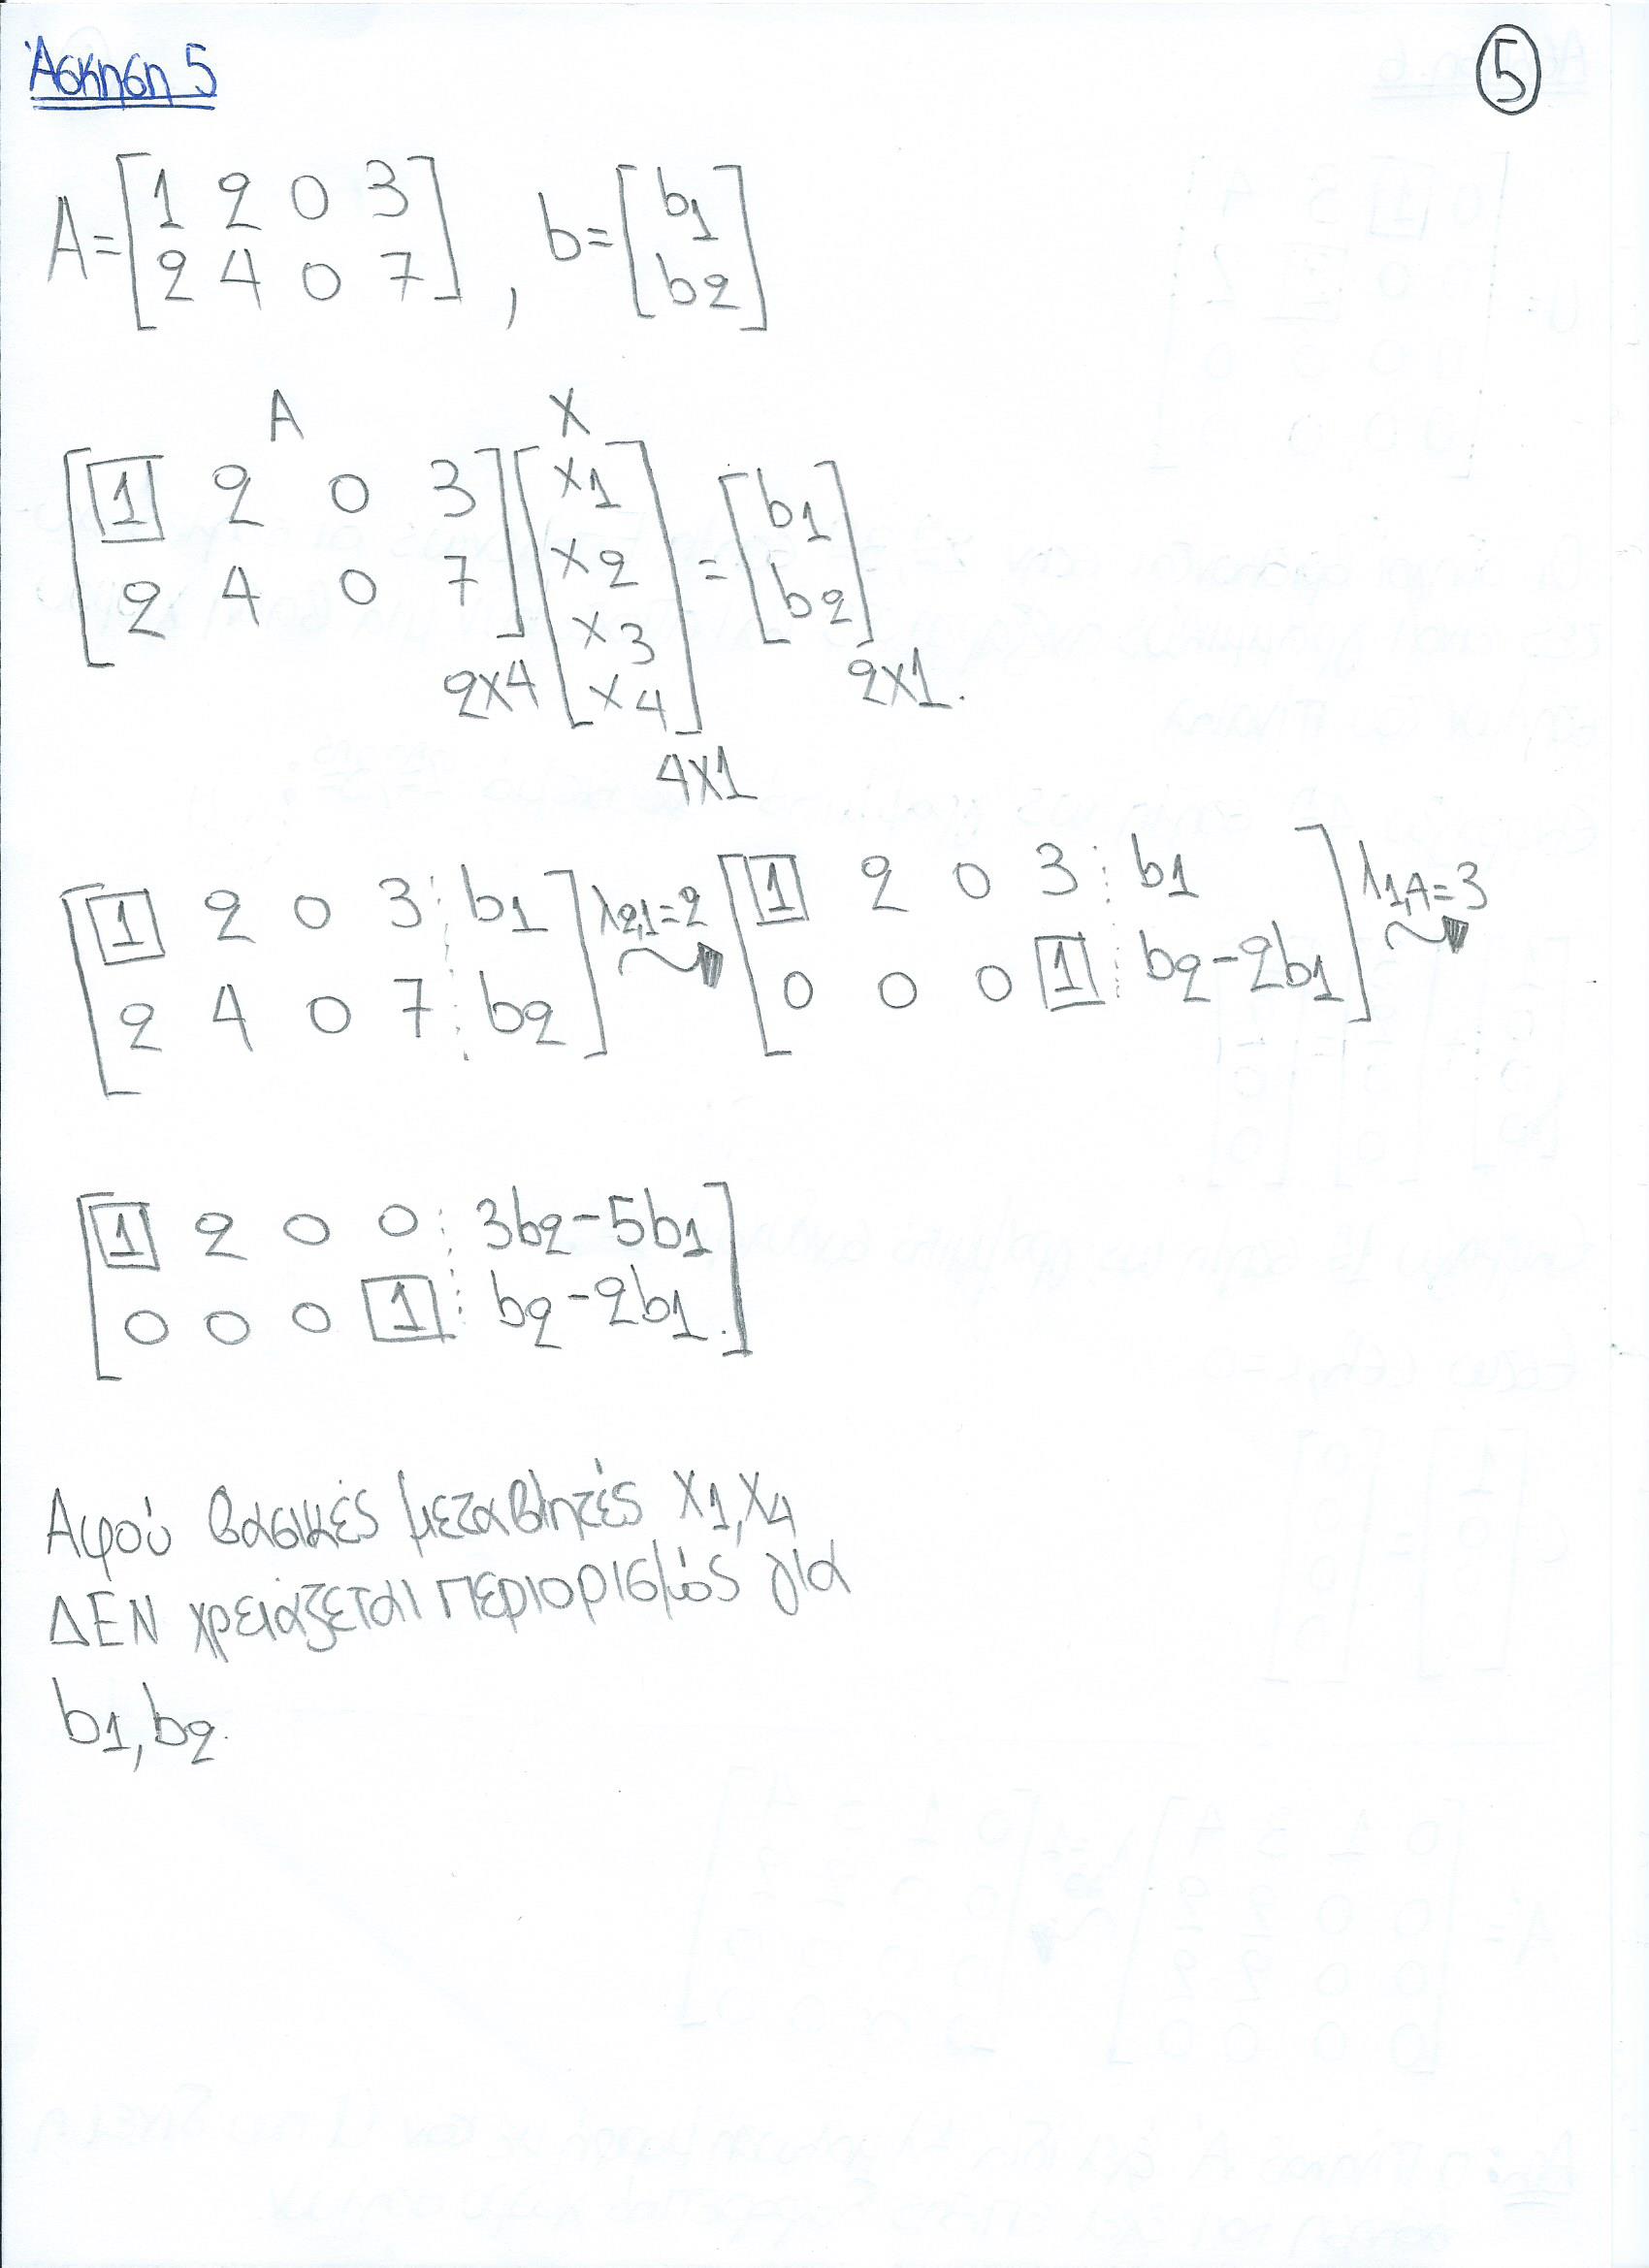 Άσκηση 5
5
A= [1 2 0 3
2 4 0 7] , b= [b1
b2]
A X
[1 2 0 3
2 4 0 7] 2x4 [x1
x2
x3
x4] 4x1 = [b1
b2] 2x1.
[1 2 0 3 ⋮ b1
2 4 0 7 ⋮ b2] λ2,1=2 [1 2 0 3 ⋮ b1
0 0 0 1 ⋮ b2-2b1] λ1,4=3
[1 2 0 0 ⋮ 3b2-5b1
0 0 0 1 ⋮ b2-2b1]
Αφού βασικές μεταβλητές x1,x4
ΔΕΝ χρειάζεται περιορισμός για
b1, b2.